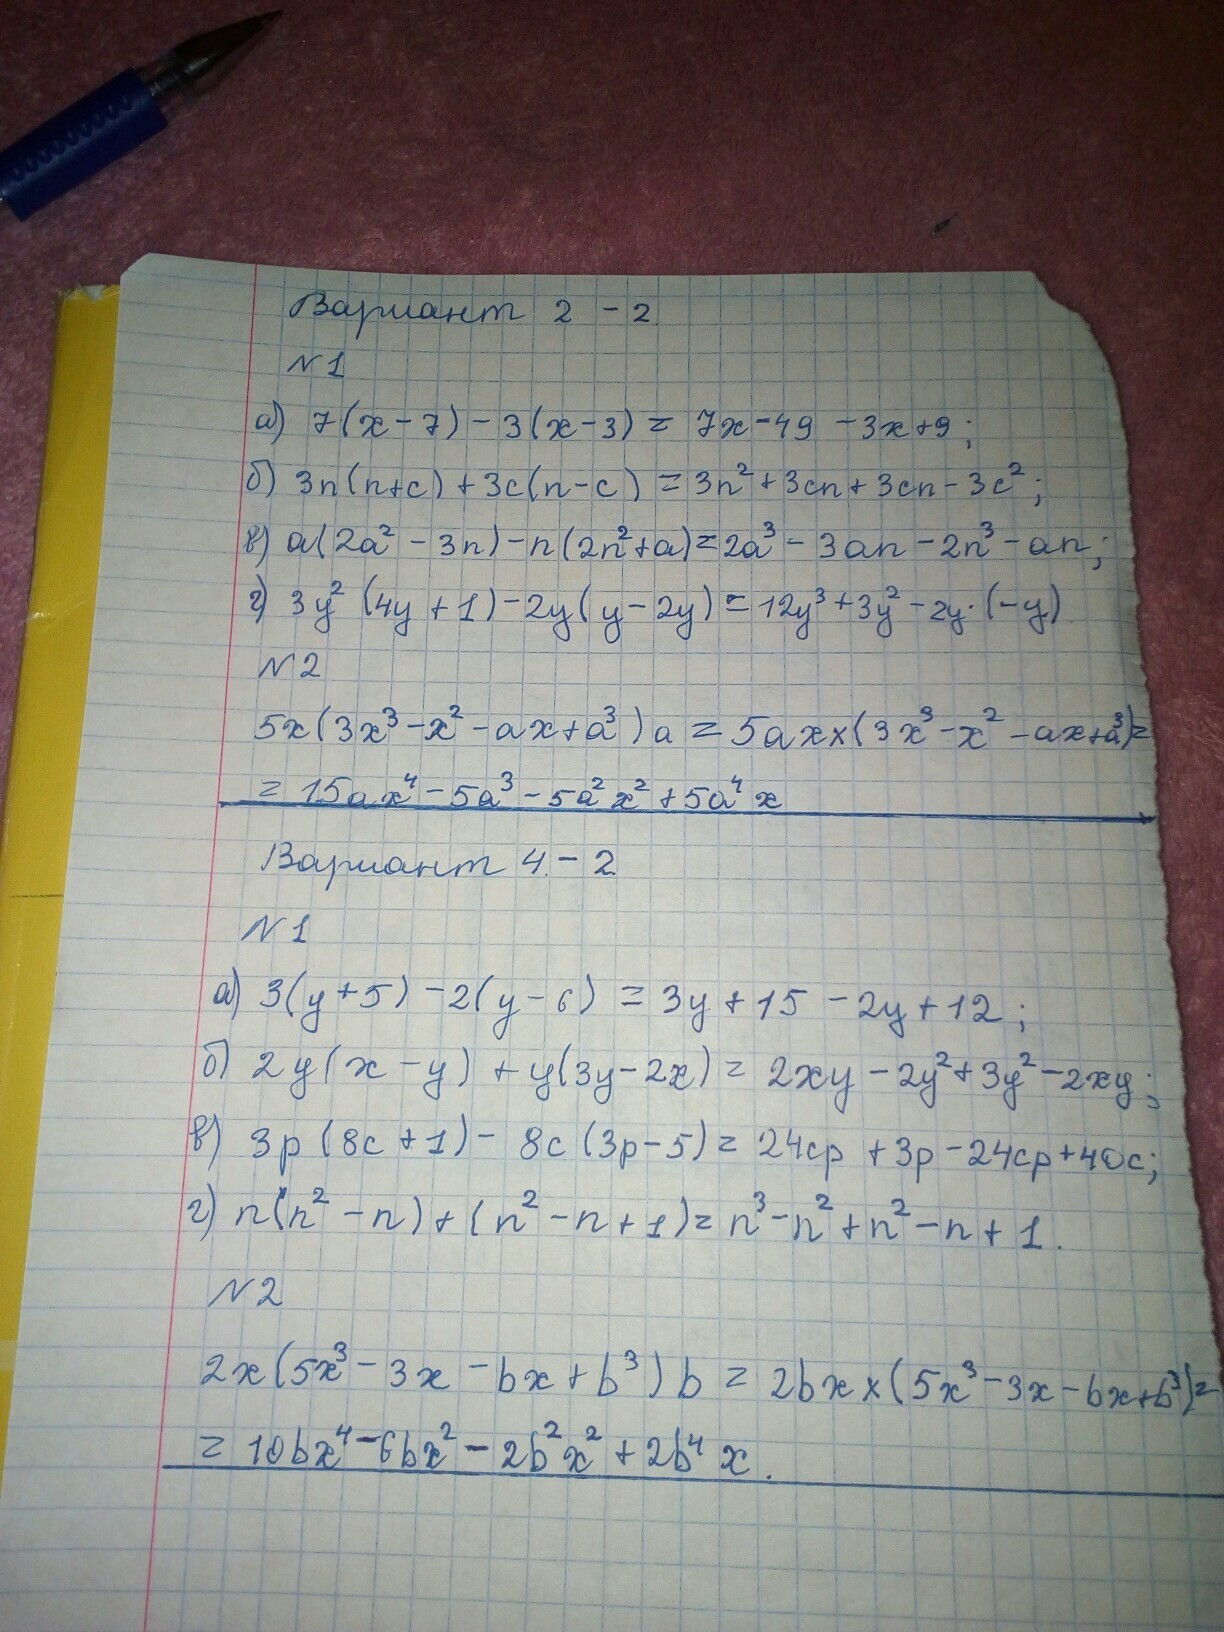 Вариант 2 - 2
N1
а) 7(x-7) - 3(x-3) = 7x-49 -3x+9;
б) 3n(n+c) + 3c(n-c) = 3n²+3cn+3cn-3c²;
в) a(2a² - 3n) - n(2n²+a)=2a³ - 3an -2n³ -an;
г) 3y² (4y+1) -2y(y-2y) = 12y³ +3y² -2y·(-y)
N2
5x(3x³-x²-ax+a³)a = 5ax×(3x³-x² -ax+a³)=
= 15ax⁴ -5a³ -5a²x² +5a⁴x
Вариант 4 - 2
N1
а) 3(y+5) -2(y-6) = 3y+15 -2y+12;
б) 2y(x-y) + y(3y-2x) = 2xy -2y²+3y²-2xy;
в) 3p (8c+1) - 8c (3p-5) = 24cp +3p -24cp+40c;
г) n(n² -n) + (n² -n+1) = n³-n²+n²-n+1.
N2
2x(5x³-3x-bx+b³)b = 2bx×(5x³-3x-bx+b³)=
= 10bx⁴-6bx²-2b²x²+2b⁴x.